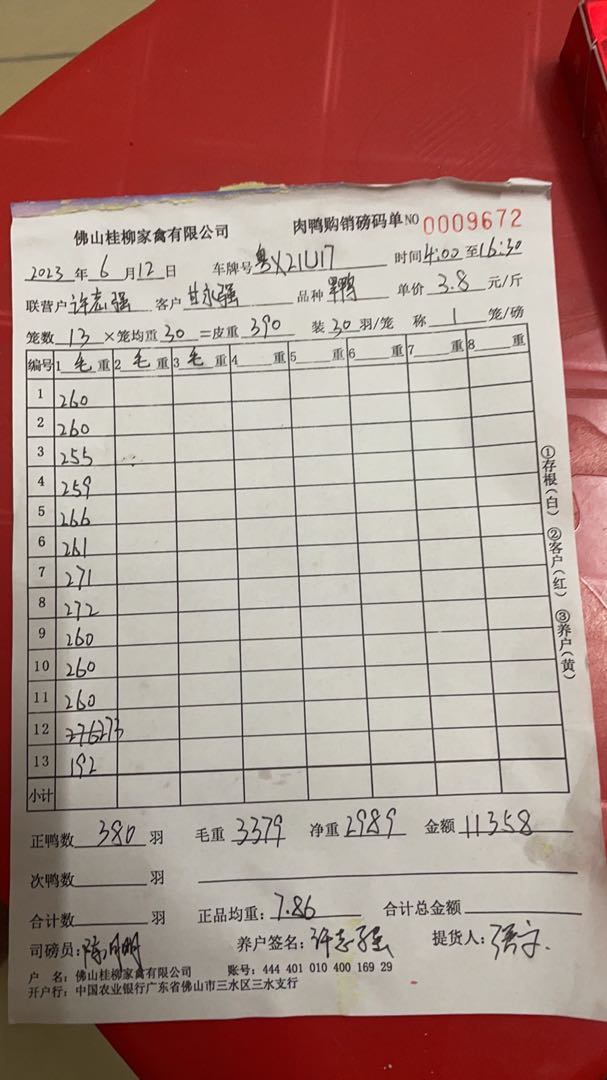 佛山桂柳家禽有限公司 肉鸭购销磅码单NO 0009672
2023 年 6 月 12 日 车牌号 粤X21U17 时间 4:00 至 16:30
联营户 许志强 客户 甘永强 品种 单价 3.8 元/斤
笼数 13 ×笼均重 30 =皮重 390 装 30 羽/笼 称 1 笼/磅
编号 1 毛 重 2 毛 重 3 毛 重 4 重 5 重 6 重 7 重 8 重
1 260
2 260
3 255
4 259
5 266
6 261
7 271
8 272
9 260
10 260
11 260
12 273
13 192
小计
①存根(白) ②客户(红) ③养户(黄)
正鸭数 380 羽 毛重 3379 净重 2989 金额 11358
次鸭数 羽
合计数 羽 正品均重: 7.86 合计总金额
司磅员: 养户签名: 许志强 提货人:
户 名: 佛山桂柳家禽有限公司 账号: 444 401 010 400 169 29
开户行: 中国农业银行广东省佛山市三水区三水支行